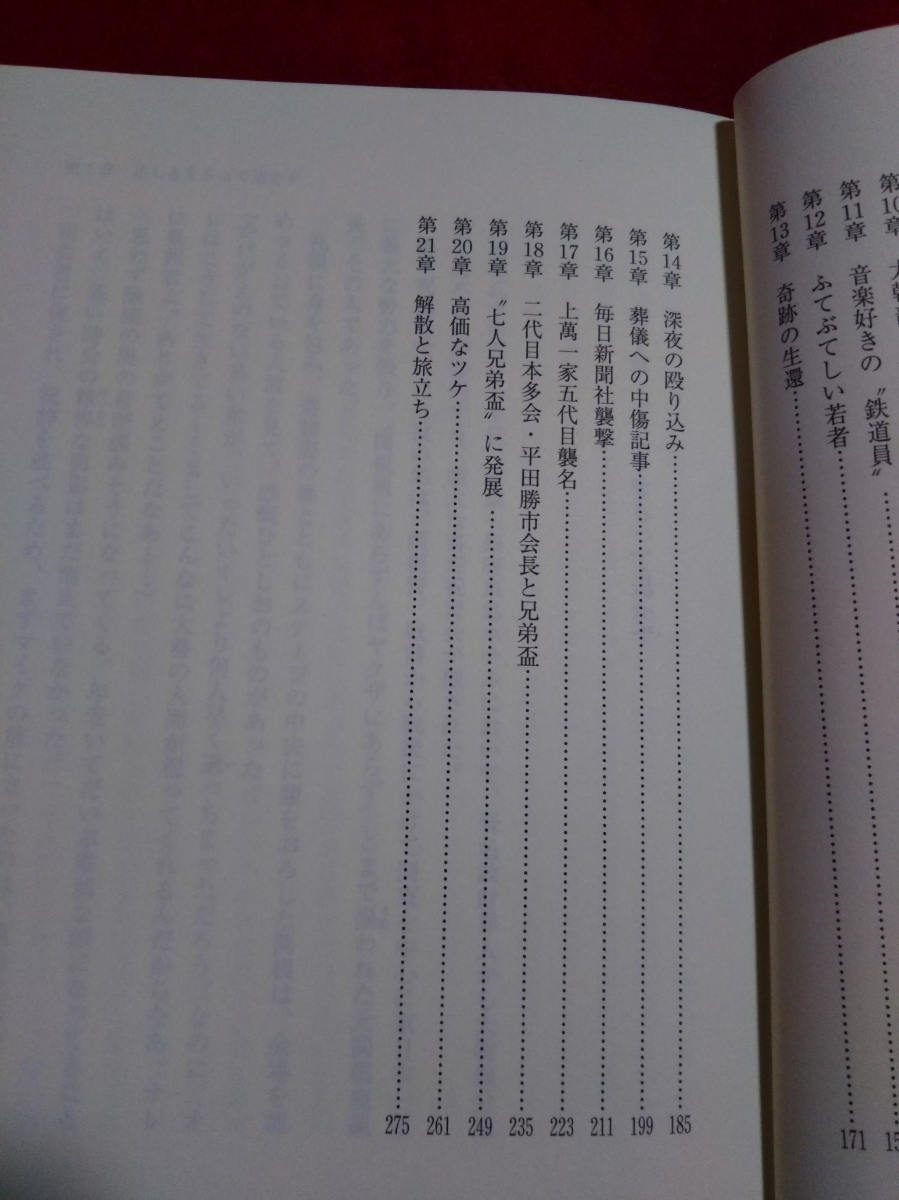 第11章　音楽好きの〝鉄道員〟
第12章　ふてぶてしい若者
第13章　奇跡の生還……171
第14章　深夜の殴り込み……185
第15章　葬儀への中傷記事……199
第16章　毎日新聞社襲撃……211
第17章　上萬一家五代目襲名……223
第18章　二代目本多会・平田勝市会長と兄弟盃……235
第19章　〝七人兄弟盃〟に発展……249
第20章　高価なツケ……261
第21章　解散と旅立ち……275